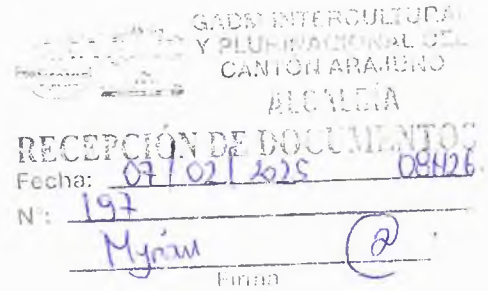 GADS INTERCULTURAL
Y PLURINACIONAL DEL
CANTÓN ARAJUNO
ALCALDÍA
RECEPCIÓN DE DOCUMENTOS
Fecha: 07/02/2025 08H26
N°: 197
Firma